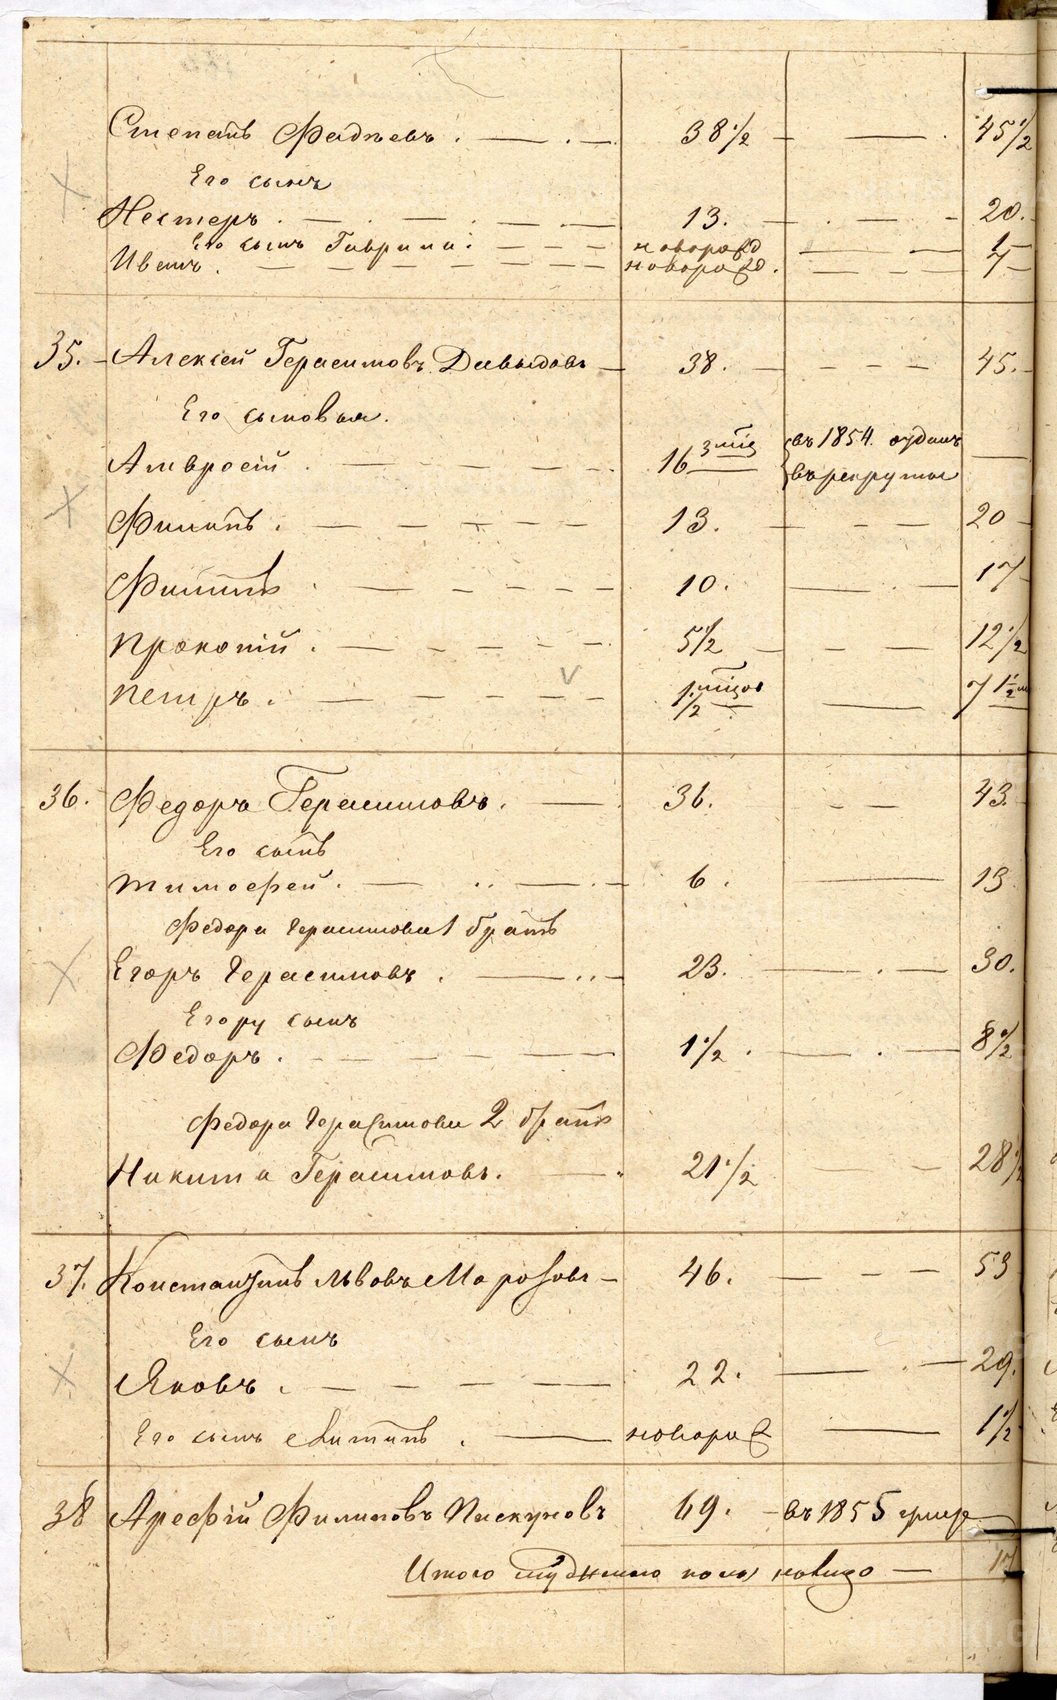 Степанъ Фадѣевъ. 38 1/2 45 1/2
Его сынъ
Нестеръ. 13. 20.
Его сынъ Гаврила.новорожд 1
Иванъ. новорожд. 7
35. Алексѣй Герасимовъ Давыдовъ 38. 45.
Его сыновья.
Амвросій 16 3 міс въ 1854. отданъ
въ рекруты
Филипъ. 13. 20
Филиппъ 10. 17
Прокопій. 5 1/2 12 1/2
Петръ. 1 1/2 міцов 7 1 1/2 м
36. Федоръ Герасимовъ. 36. 43.
Его сынъ
Тимофей. 6. 13
Федора Герасимова 1 братъ
Егоръ Герасимовъ. 23. 30.
Егору сынъ
Федоръ. 1 1/2. 8 1/2
Федора Герасимова 2 братъ
Никита Герасимовъ. 21 1/2 28 1/2
37. Константинъ Львовъ Морозовъ 46. 53
Его сынъ
Яковъ. 22. 29.
Его сынъ новорож 1 1/2
38 Арефій Филиповъ Пискуновъ 69. въ 1855 умер
Итого мужеска пола налицо 17